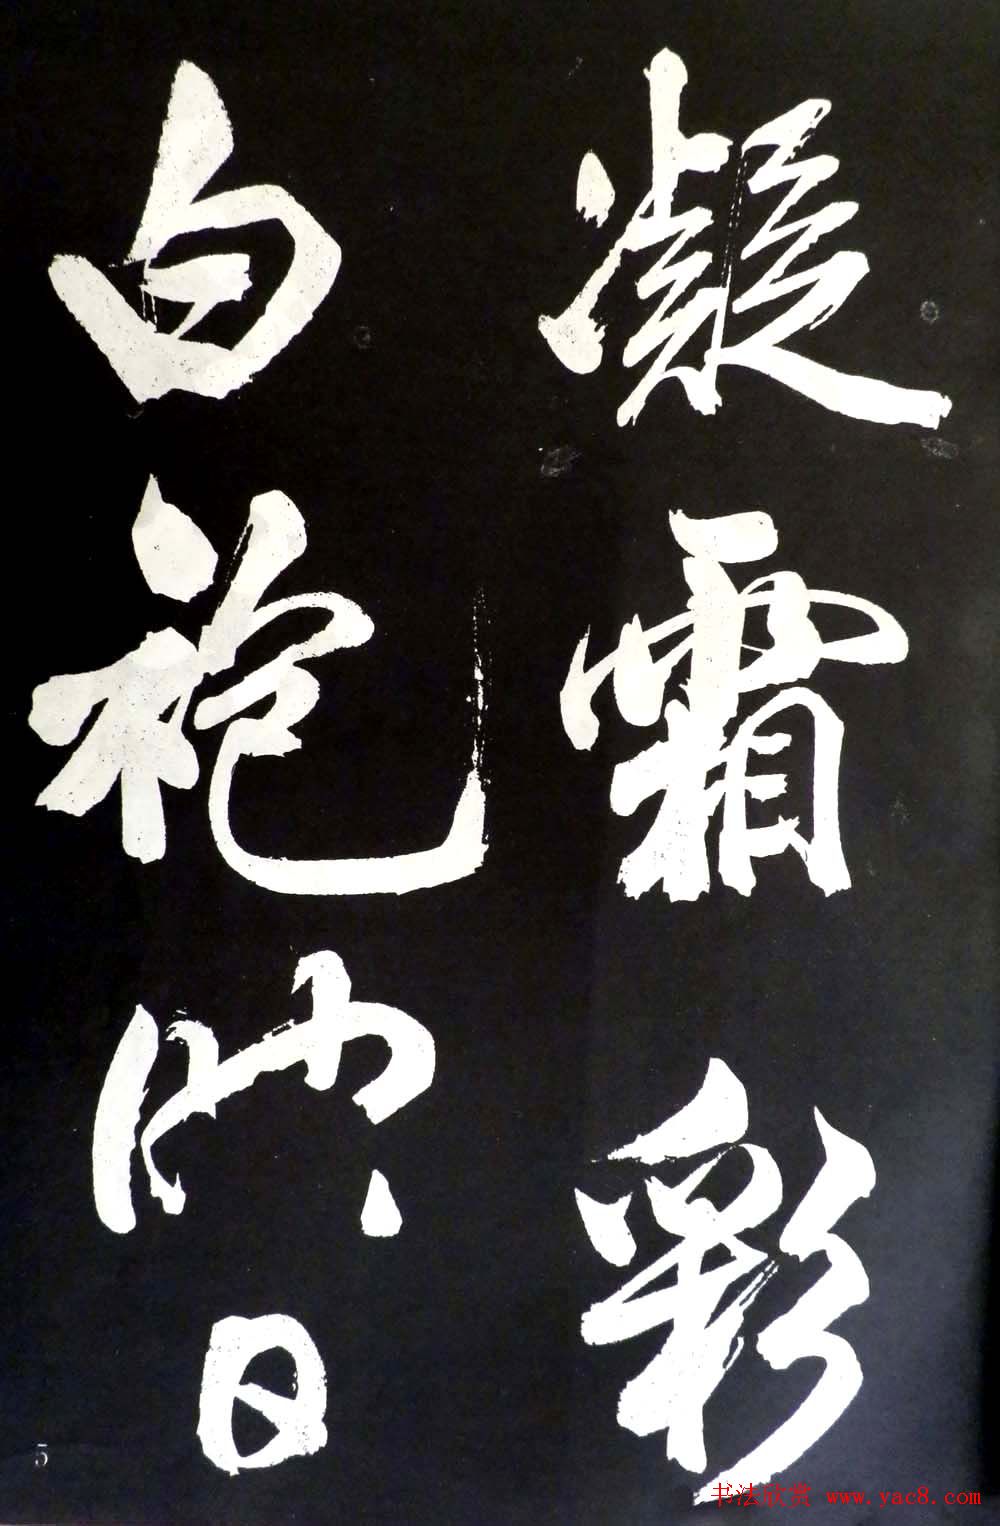 凝霜彩
白袍日
5
书法欣赏 www.yac8.com